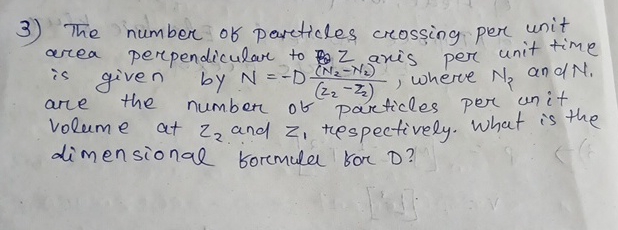 3) The number of particles crossing per unit
area perpendicular to Z axis per unit time
is given by N = -D (N₂-N₂)/(Z₂-Z₂), where N₂ and N.
are the number of particles per unit
volume at Z₂ and Z, respectively. What is the
dimensional formula for D?